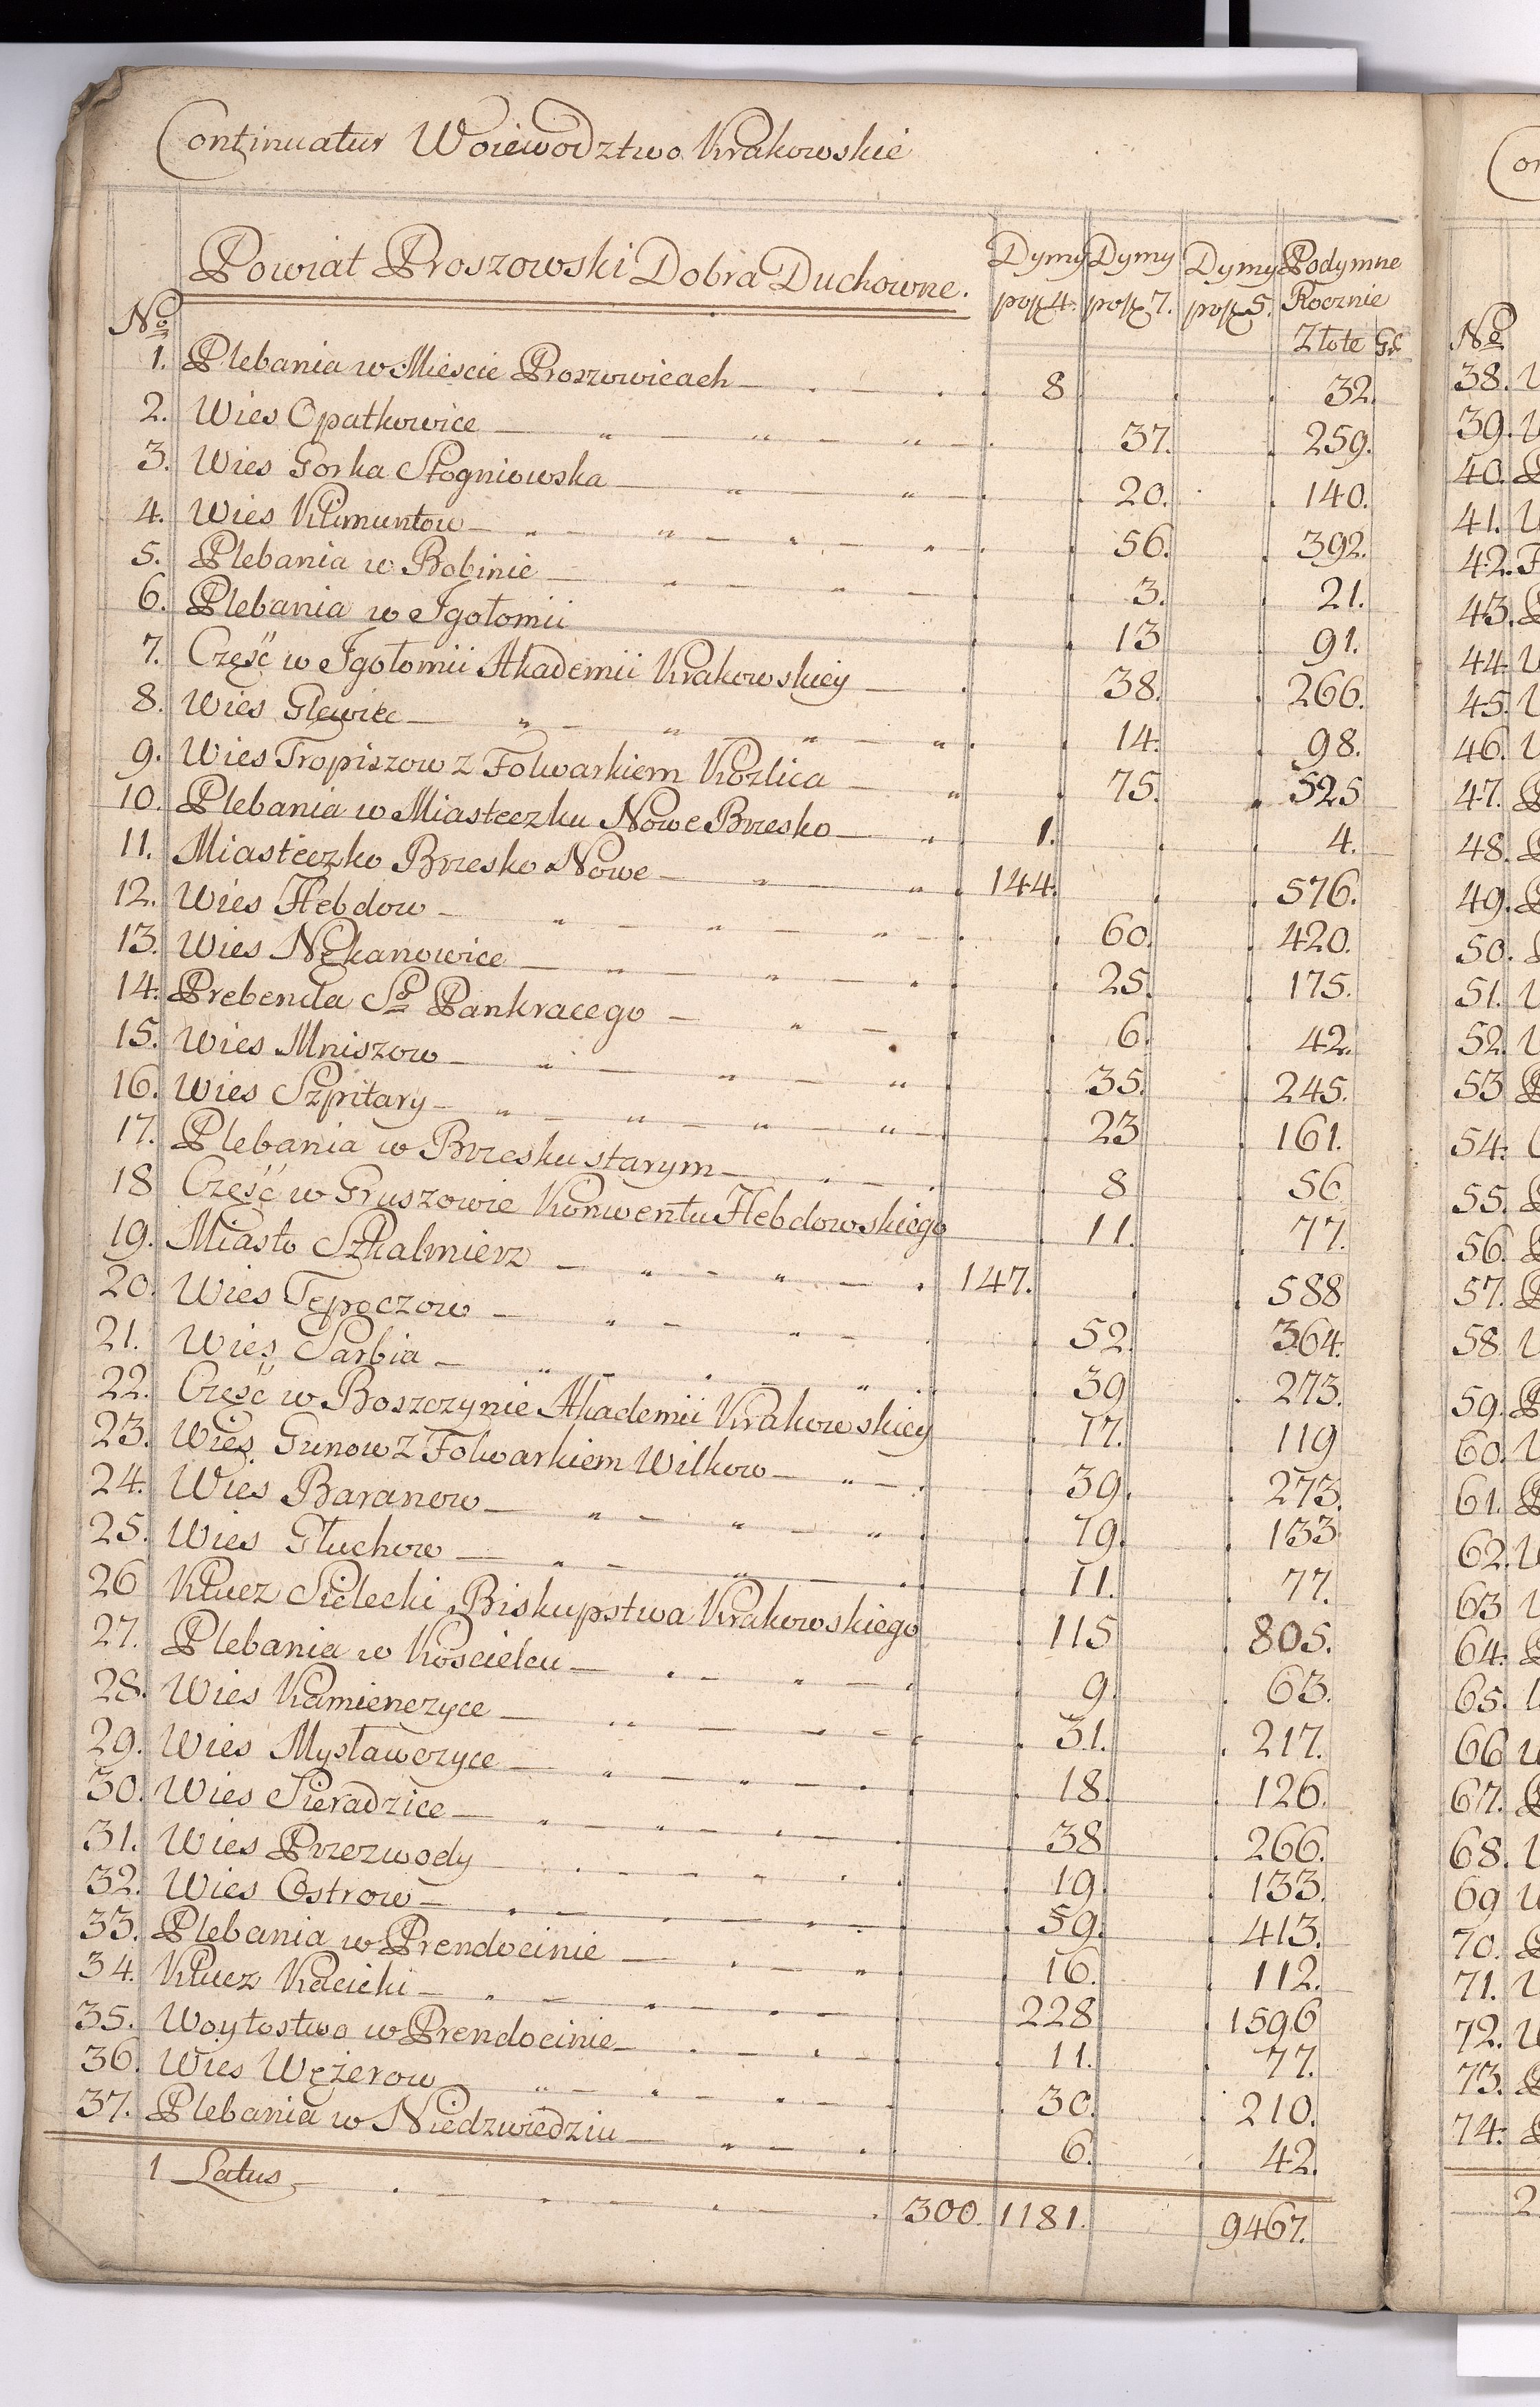 Continuatur Woiewodztwo Krakowskie
Powiat Proszowski Dobra Duchowne. Dymy Dymy Dymy Podymne
po zł 4. po zł 7. po zł 5. Rocznie
No Złote Gr
1. Plebania w Miescie Proszowicach 8 32.
2. Wies Opatkowice 37. 259.
3. Wies Gorka Stogniowska 20. 140.
4. Wies Klimuntow 56. 392.
5. Plebania w Bobinie 3. 21.
6. Plebania w Igołomii 13 91.
7. Część w Igołomii Akademii Krakowskiey 38. 266.
8. Wies Glewiec 14. 98.
9. Wies Tropiszow z Folwarkiem Kozlica 75. 525
10. Plebania w Miasteczku Nowe Brzesko 1. 4.
11. Miasteczko Brzesko Nowe 144. 576.
12. Wies Hebdow 60. 420.
13. Wies Nękanowice 25. 175.
14. Prebenda So Pankracego 6. 42.
15. Wies Mniszow 35. 245.
16. Wies Szpitary 23 161.
17. Plebania w Brzesku starym 8 56
18 Część w Gruszowie Konwentu Hebdowskiego 11. 77.
19. Miasto Szkalmierz 147. 588
20. Wies Tępoczow 52. 364.
21. Wies Sarbia 39 273.
22. Część w Boszczynie Akademii Krakowskiey 17. 119
23. Wies Gunow z Folwarkiem Wilkow 39. 273.
24. Wies Baranow 19. 133
25. Wies Głuchow 11. 77.
26 Klucz Sielecki Biskupstwa Krakowskiego 115 805.
27. Plebania w Koscielcu 9. 63.
28. Wies Kamienczyce 31. 217.
29. Wies Mysławczyce 18. 126.
30. Wies Sieradzice 38 266.
31. Wies Przezwody 19. 133.
32. Wies Ostrow 59. 413.
33. Plebania w Prendocinie 16. 112.
34. Klucz Kacicki 228 1596
35. Woytostwo w Prendocinie 11. 77.
36. Wies Wężerow 30. 210.
37. Plebania w Niedzwiedziu 6. 42.
1 Latus 300. 1181. 9467.
No
38.
39.
40.
41.
42.
43.
44.
45.
46.
47.
48.
49.
50.
51.
52.
53
54.
55.
56.
57.
58.
59.
60.
61.
62.
63
64.
65.
66
67.
68.
69
70.
71.
72.
73.
74.
2